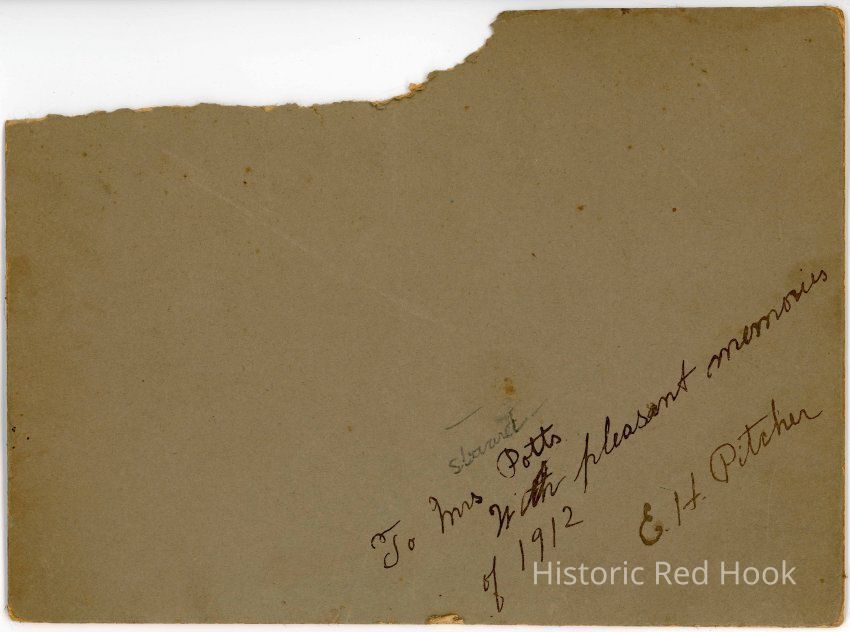 To Mrs Potts
With pleasant memories
of 1912
E. H. Pitcher
Historic Red Hook